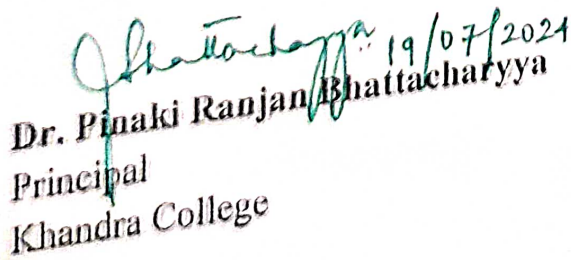 Bhattacharyya 19/07/2024
Dr. Pinaki Ranjan Bhattacharyya
Principal
Khandra College